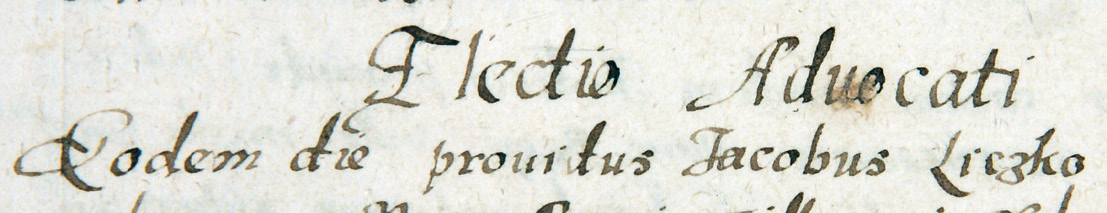 Electio Aduocati
Eodem die prouidus Jacobus Liczko